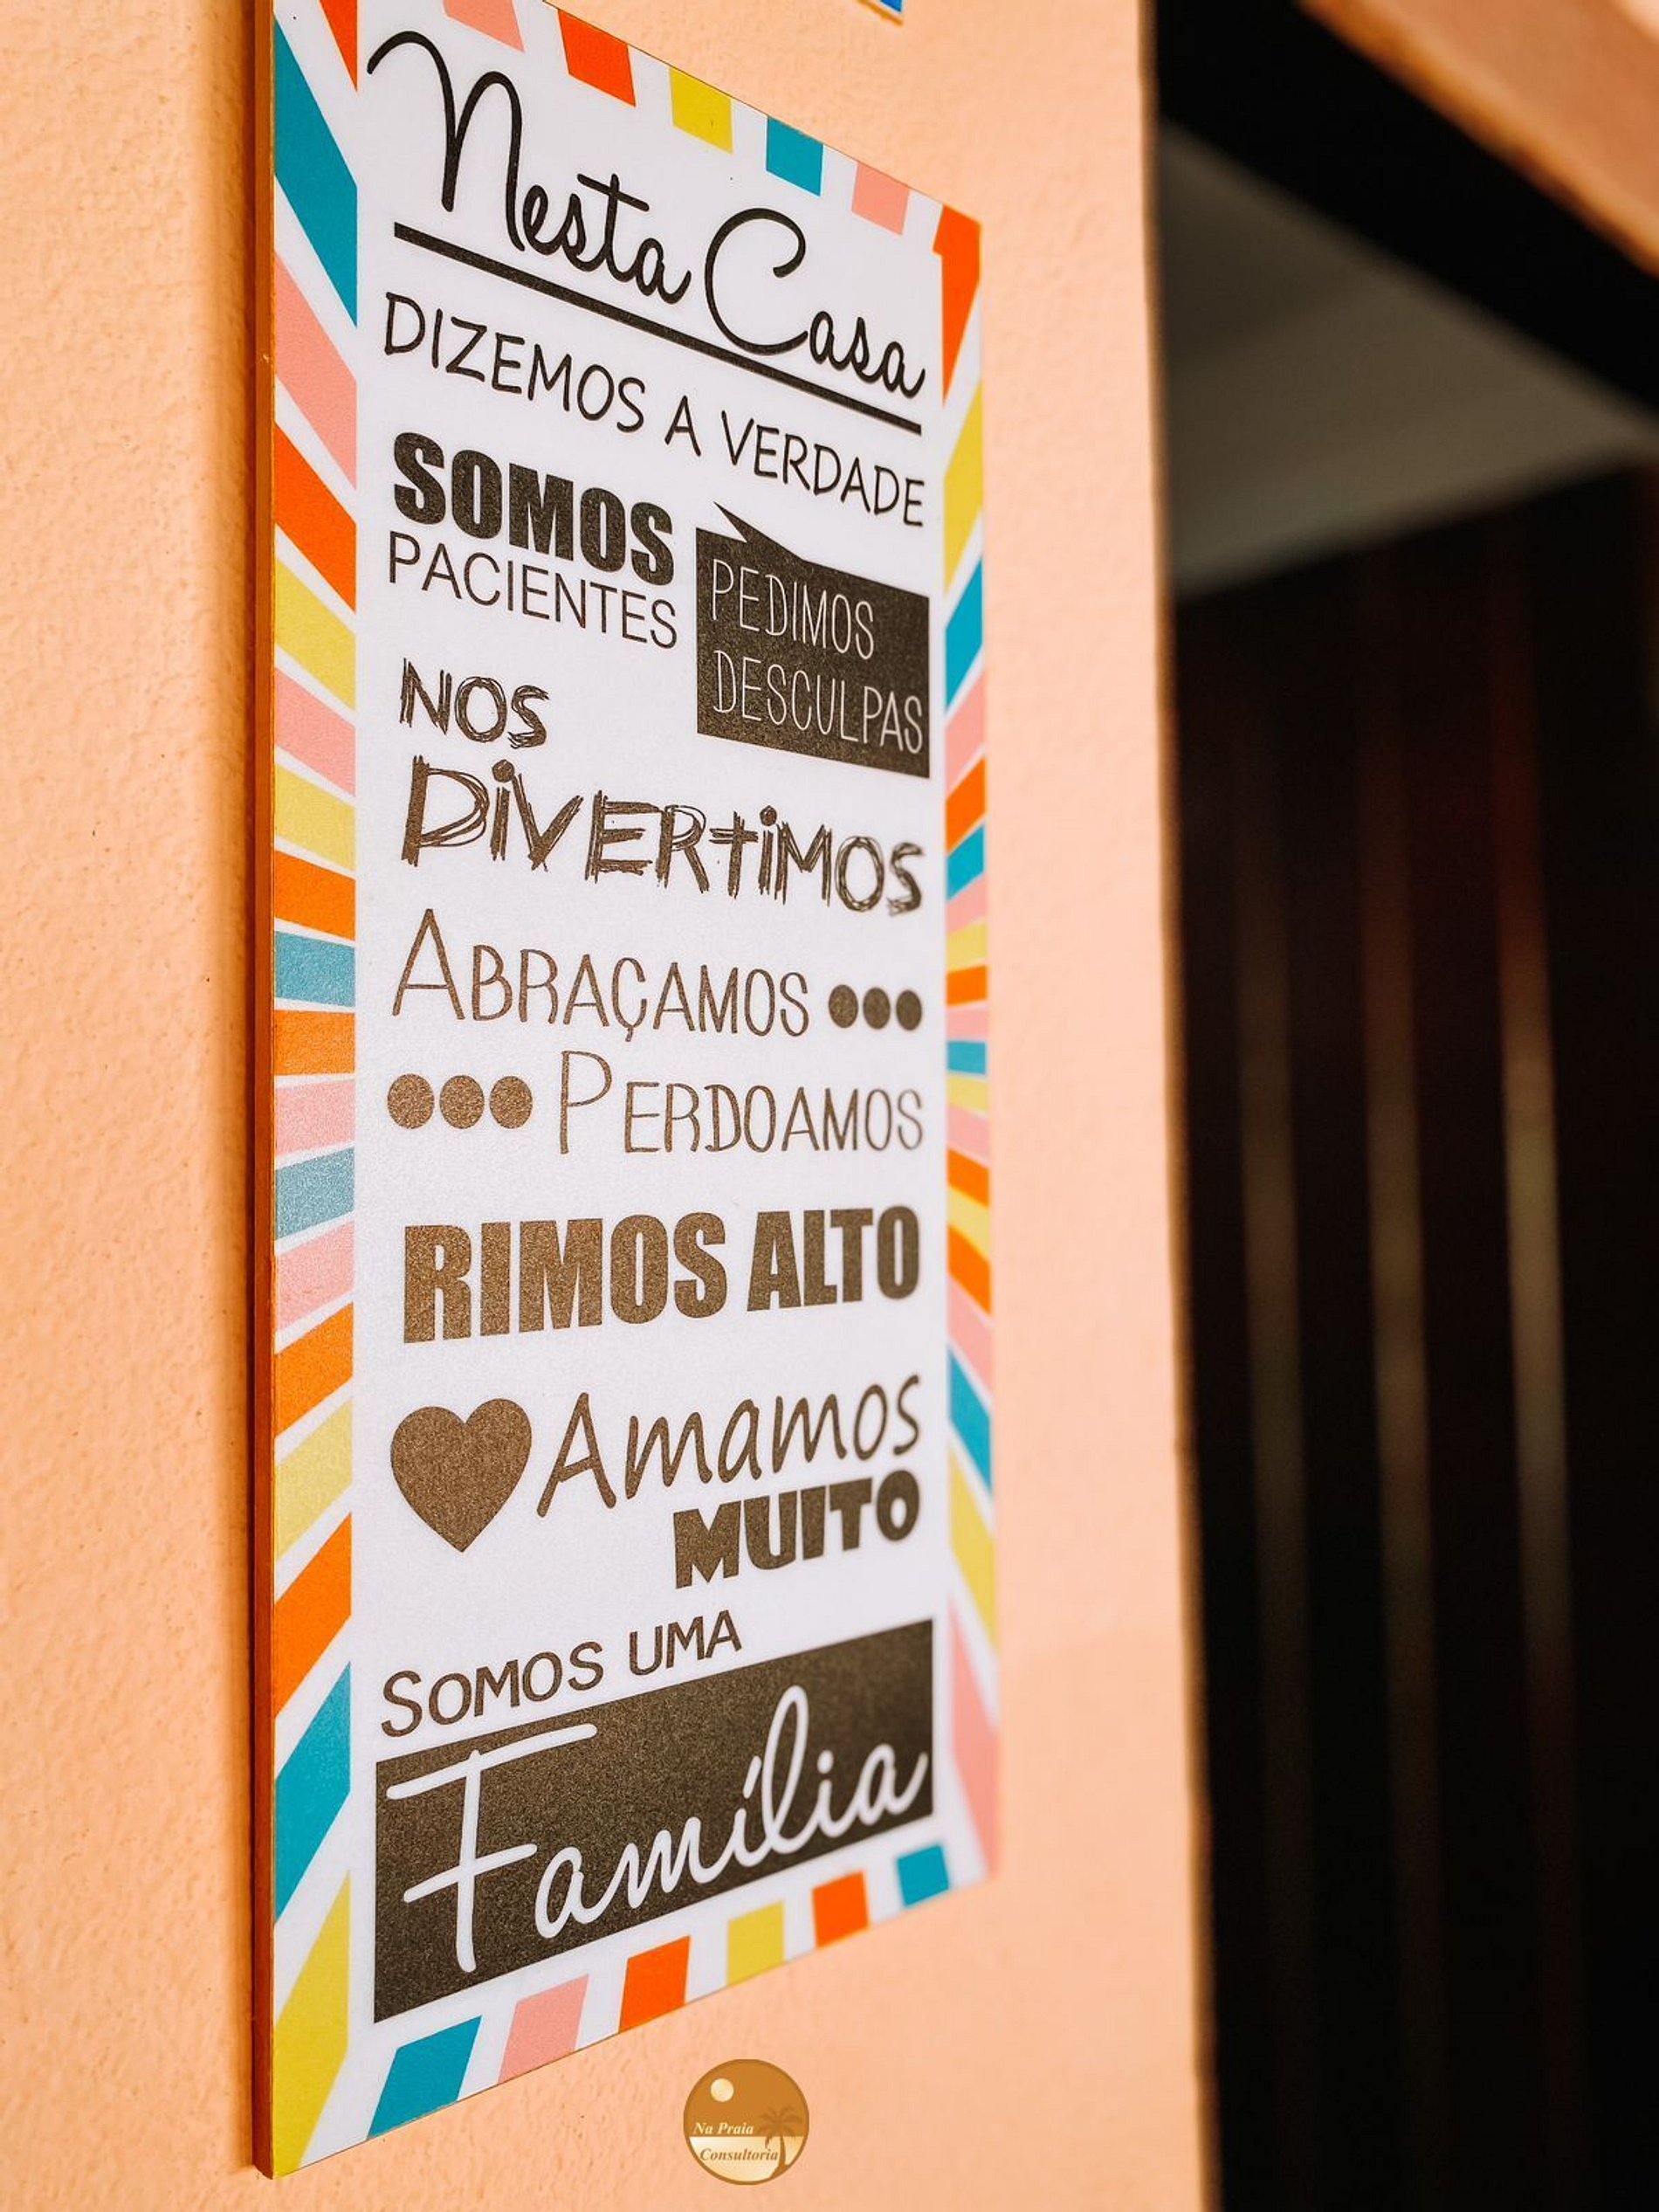 Nesta Casa
DIZEMOS A VERDADE
SOMOS
PACIENTES
PEDIMOS
DESCULPAS
NOS
DiVERTiMOS
ABRAÇAMOS
PERDOAMOS
RIMOS ALTO
Amamos
MUITO
SOMOS UMA
Família
Na Praia
Consultoria